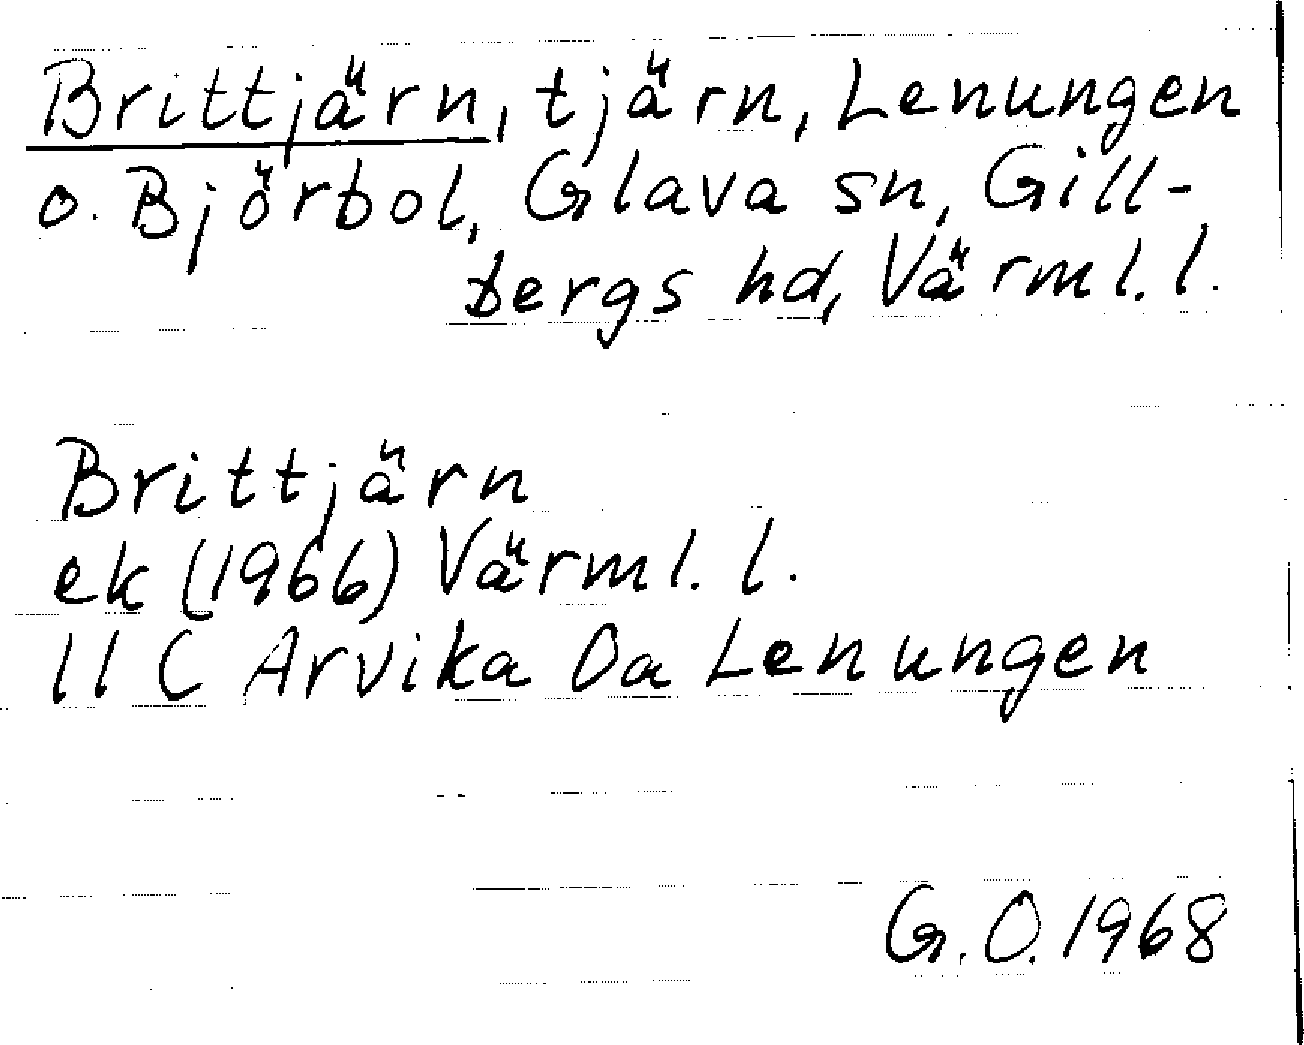 Brittjärn, tjärn, Lenungen
o. Björbol, Glava sn, Gill-
bergs hd, Värml. l.
Brittjärn
ek (1966) Värml. l.
11 C Arvika Oa Lenungen
G. O. 1968